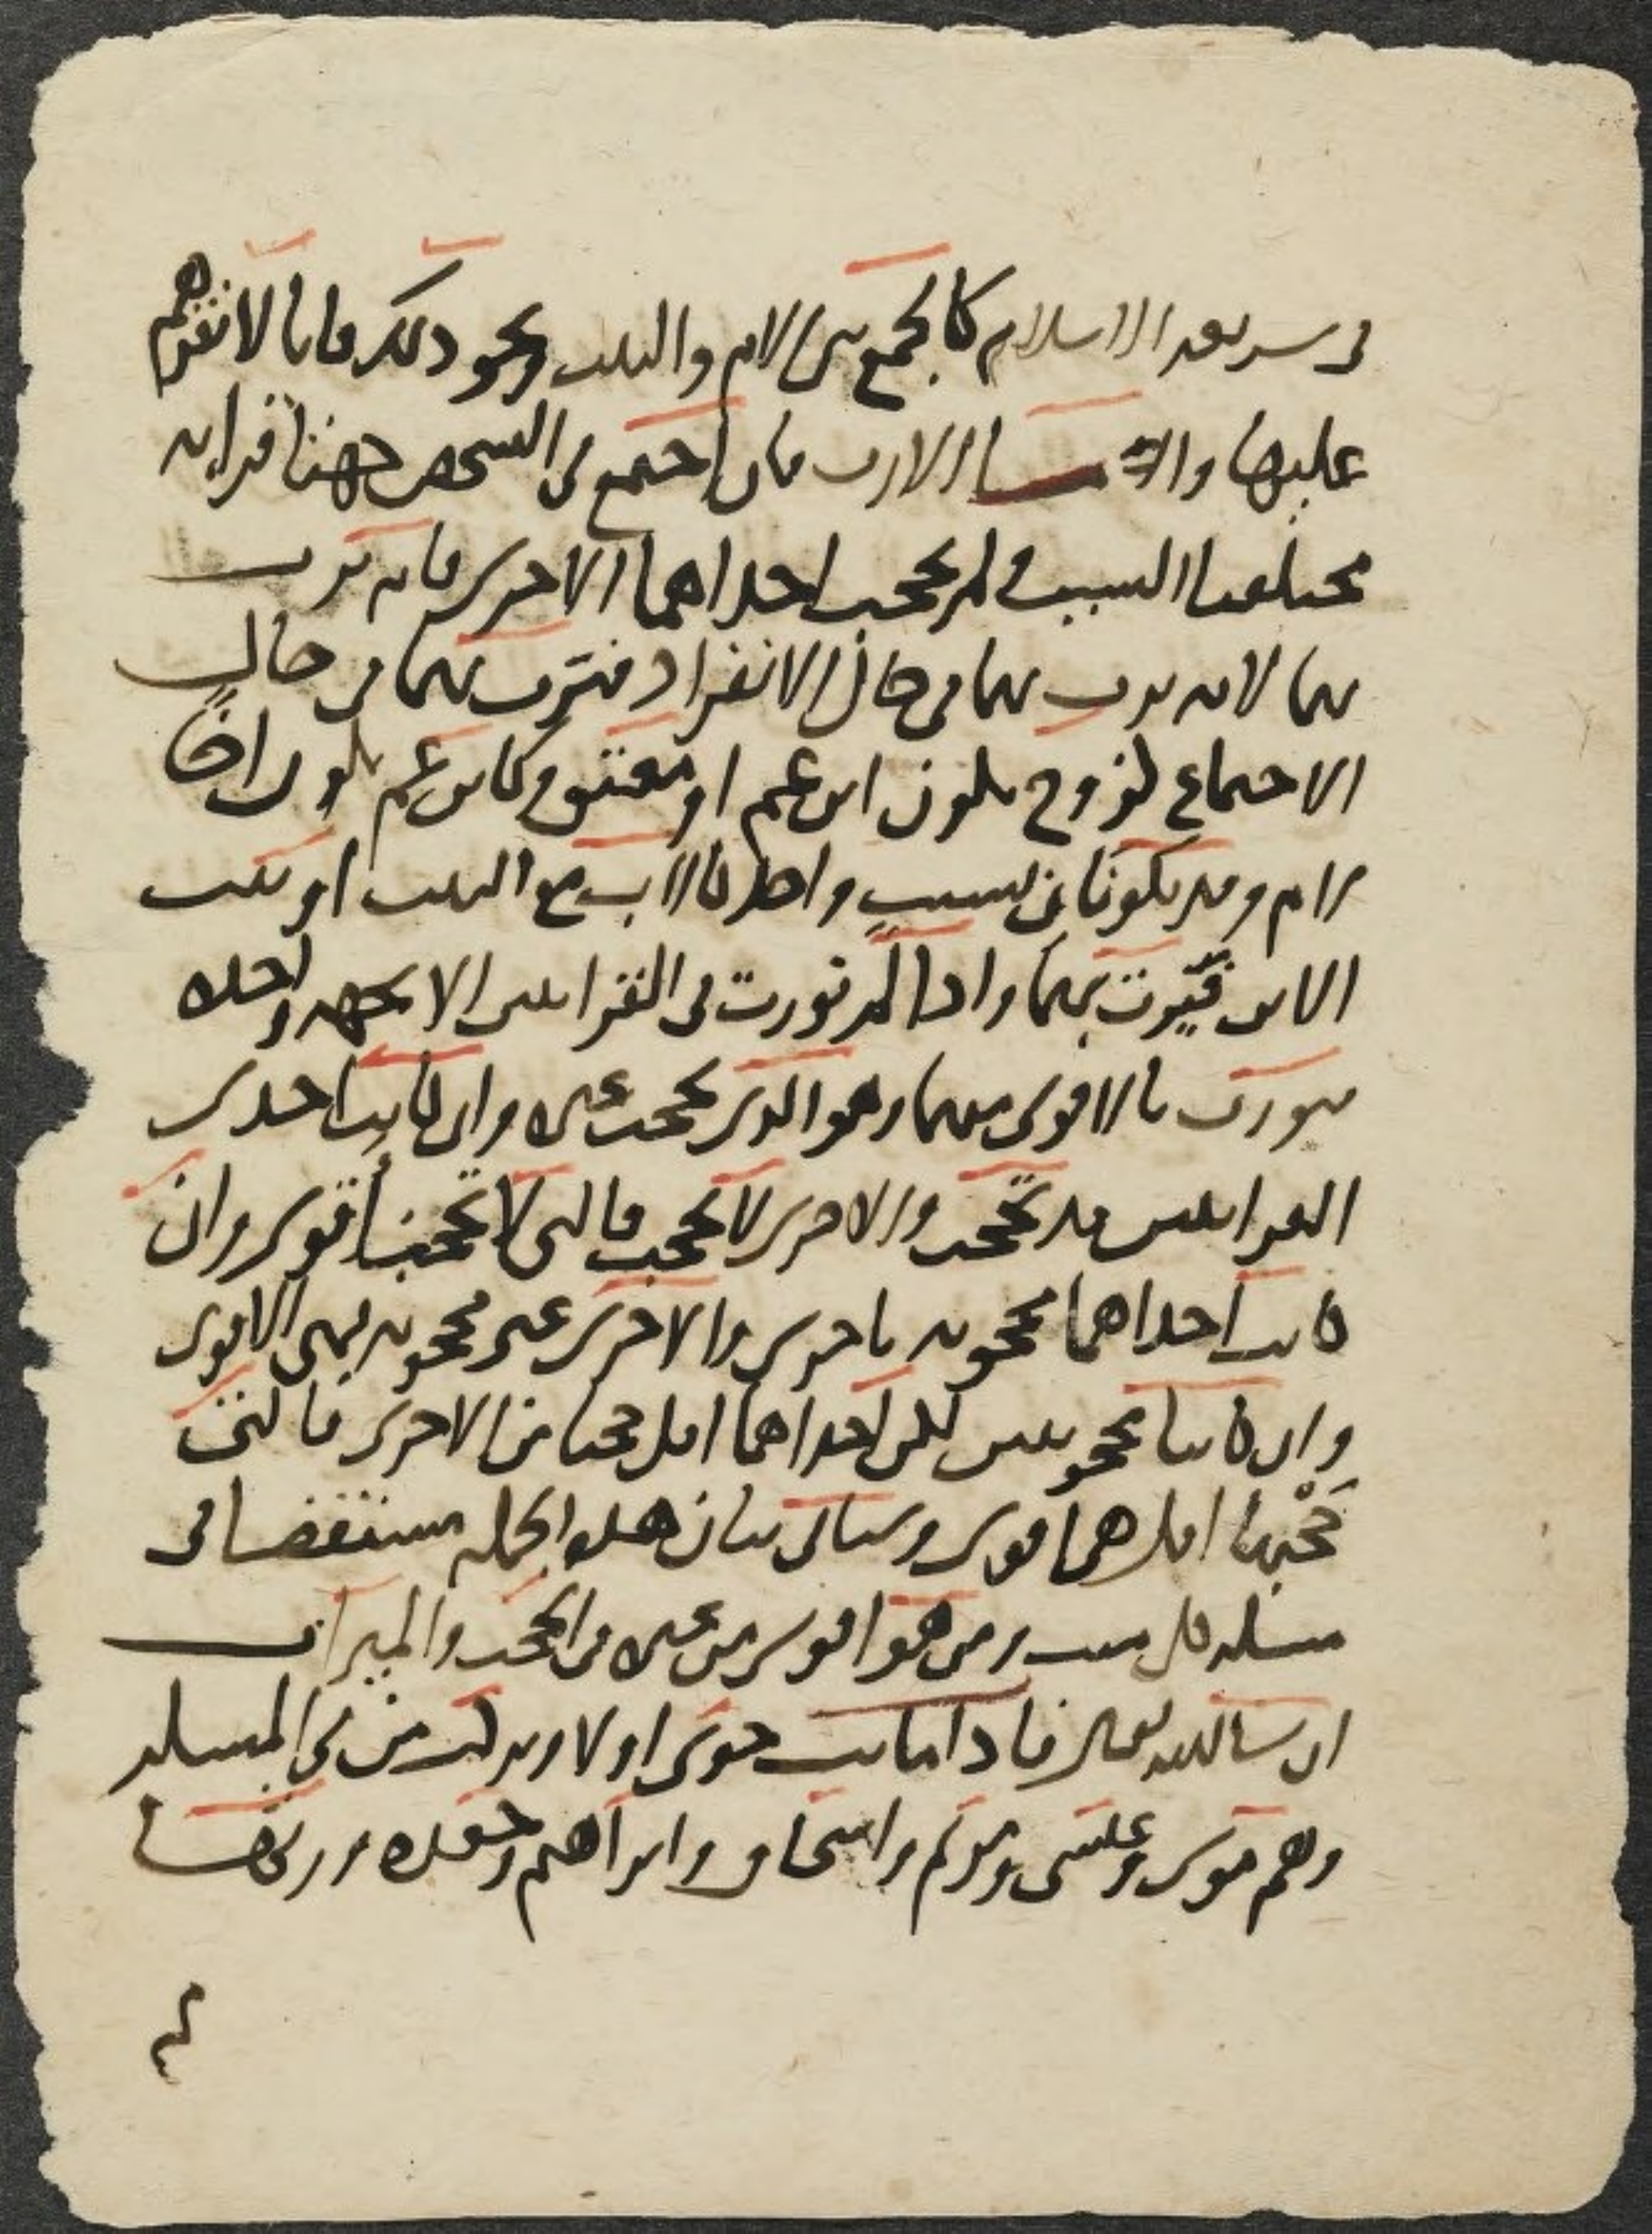 في شريعه الاسلام كالجمع بين الام والبنت ونحو ذلك فانا لا نقرهم
عليها والا الارث فان اجتمع في الشخص جهتا قرابه
مختلفتا السبب ولم تحجب احداهما الاخرى فانه يرث
بهما لانه يرث بهما في حال الانفراد فترث بهما في حال
الاجتماع كزوج يكون ابن عم او معتق وكابن عم يكون اخا
من ام وقد يكونا من سبب واحد كالاب مع البنت او بنت
الابن فيرث بهما واذا لم نورث في القرابتين الا بجهه واحده
فيورث بالاقوى منهما وهو الذي يحجب غيره وان كانت احدى
القرابتين قد تحجب والاخرى لا تحجب فالتي لا تحجب اقوى وان
كانت احداهما محجوبه باخرى والاخرى غير محجوبه فهي الاقوى
وان كانتا محجوبتين لكن احداهما اقل حجبا من الاخرى فالتي
حجبها اقلهما اقوى وسياتي بيان هذه الجمله مستقضا في
مسله كل ميت ومن هو اقوى من غيره في الحجب والميراث
ان شا الله تعالى فاذا ماتت حوى اولا ورثت من في المسله
وهم موسى وعيسى ومريم واسحاق وابراهيم وحفده وورثها